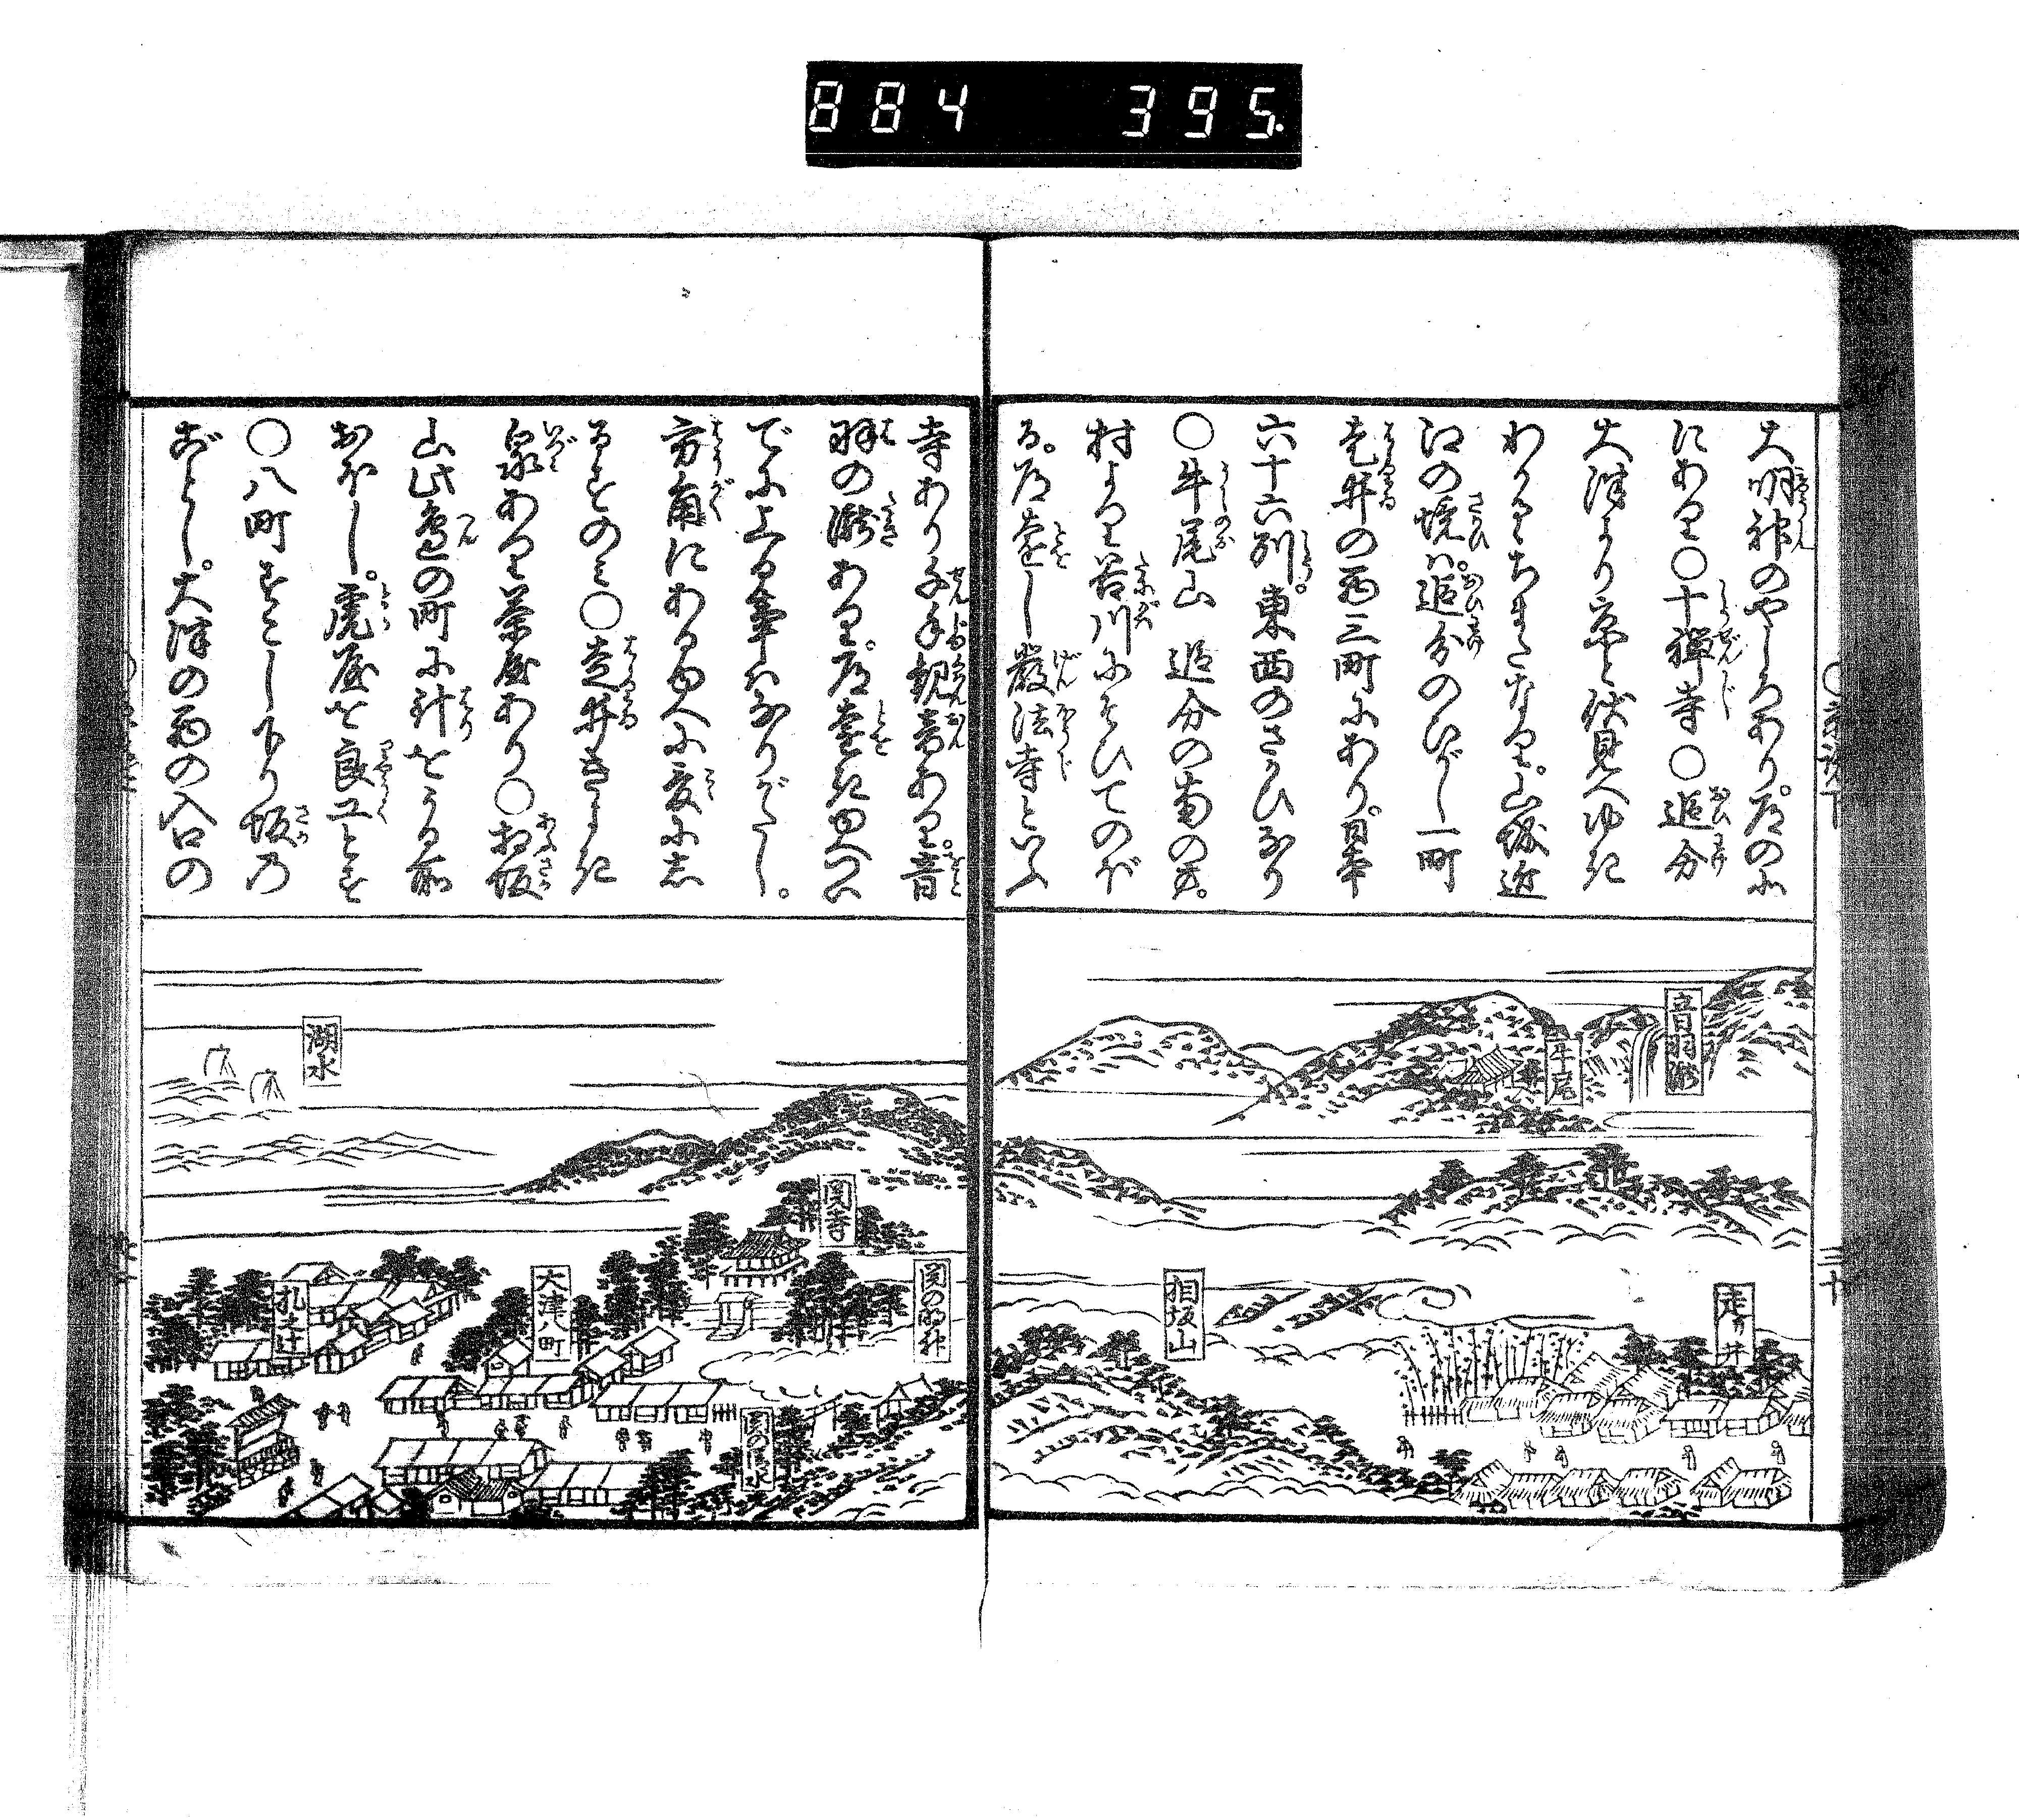 884 395.
大明神のやしろあり。道の北
にあり〇十禅寺〇追分
大津より京と伏見へゆき
わかるちまたなり。山城近
江の境ハ。追分のひがし一町
走井の西三町にあり。日本
六十六州。東西のさかひなり
〇牛尾山 追分の南の方。
村より谷川にそひてのぼ
る。道遠し厳法寺といふ
寺あり千手観音あり。音
羽の瀧あり。道遠き
でに上る事ハなりがたし。
方角にあるゆへに爰に志
るすのミ〇走井
泉あり茶屋あり〇相坂
山此邊の町に針をうる家
おほし。虎屋を良工とす
〇八町すこし下り坂乃
ごとし。大津の西の入口の
音羽瀧
牛尾
相坂山
走り井
湖水
関寺
関の明神
大津八町
札之辻
関の清水
三十